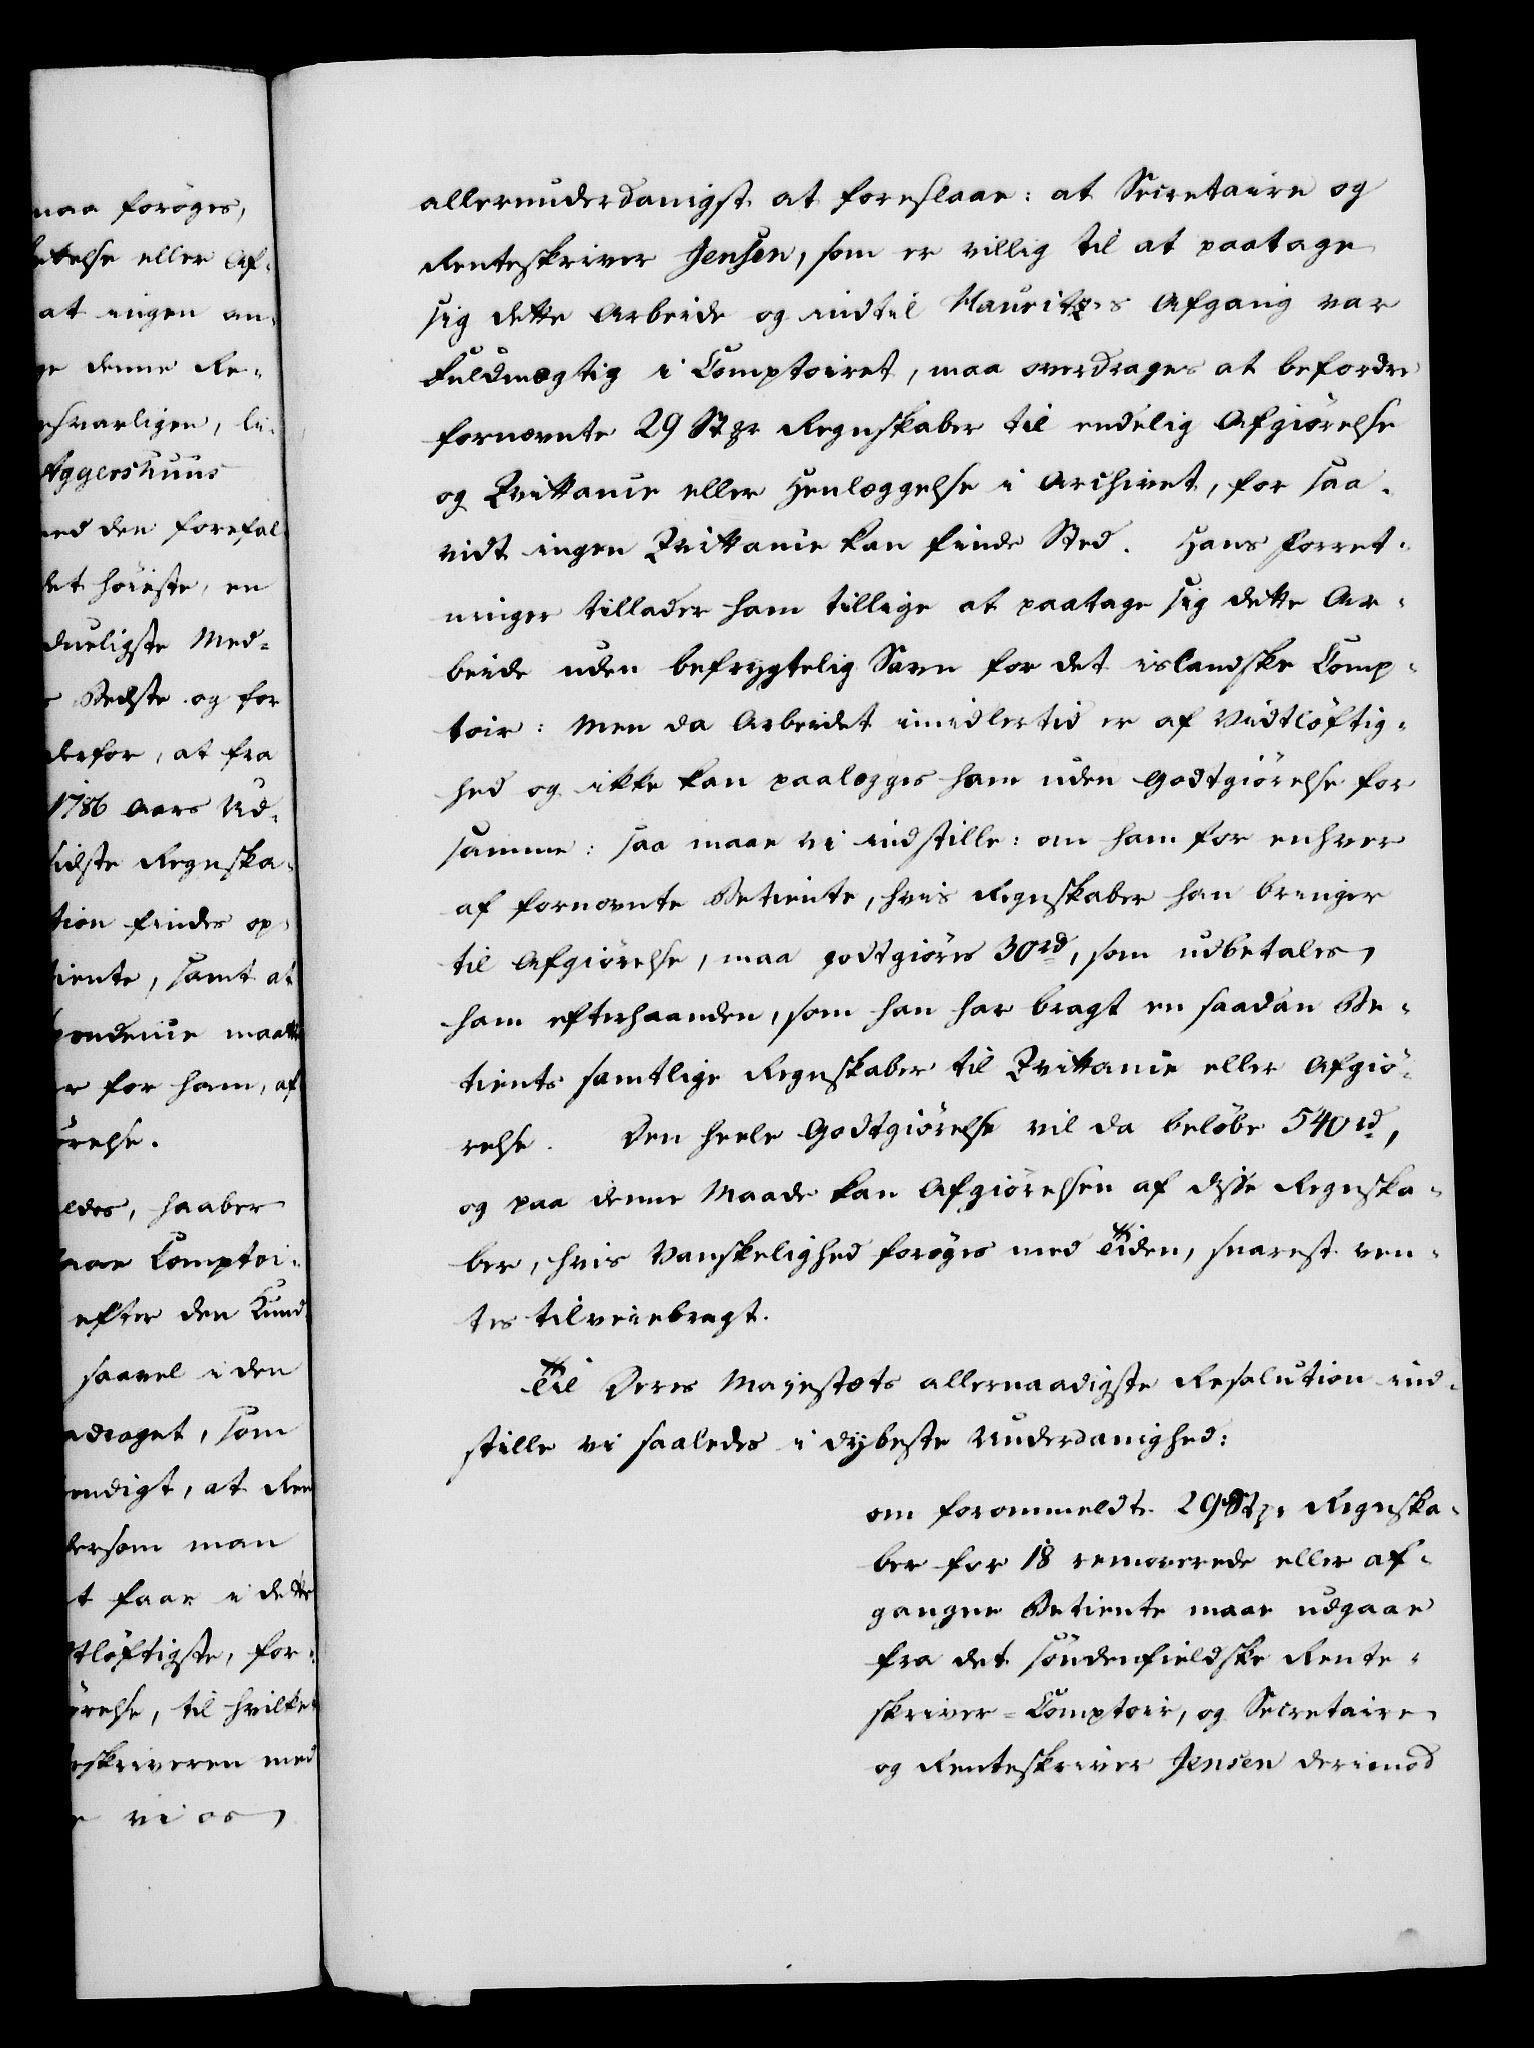 maa forøges,
ettelse eller Af-
at ingen an-
ge denne Re-
esvarligen, li-
Aggershuus
med den forefal-
det høieste, en
dueligste Med-
Bedste og for
derfor, at fra
1786 Aars Ud-
sidste Regnska-
tion findes op-
tiente, samt at
pondence maatte
er for ham, af
ørelse.
ldes, haaber
Comptoi-
efter den Kund-
saavel i den
draget, som
endigt, at Ren
dersom man
t faar i dette
tløftigste, for-
ørelse, til hvilke
eskriveren med
vi os
allerunderdanigst at foreslaae: at Secretaire og
Renteskriver Jensen, som er villig til at paatage
sig dette Arbeide og indtil Mauritzes Afgang var
Fuldmægtig i Comptoiret, maa overdrages at befordre
fornævnte 29 Stkr Regnskaber til endelig Afgiørelse
og Qvittance eller Henlæggelse i Archivet, for saa-
vidt ingen Qvittance kan finde Sted. Hans Forret-
ninger tillader ham tillige at paatage sig dette Ar-
beide uden befrygtelig Savn for det islandske Comp-
toir: Men da Arbeidet imidlertid er af Vidtløftig-
hed og ikke kan paalægges ham uden Godtgiørelse for
samme: saa maae vi indstille: om ham for enhver
af fornævnte Betiente, hvis Regnskaber han bringer
til Afgiørelse, maa godtgiøres 30 rd, som udbetales
ham efterhaanden, som han har bragt en saadan Be-
tients samtlige Regnskaber til Qvittance eller Afgiø-
relse. Den heele Godtgiørelse vil da beløbe 540 rd,
og paa denne Maade kan Afgiørelsen af disse Regnska-
ber, hvis Vanskelighed forøges med Tiden, snarest ven-
tes tilveiebragt.
Til Deres Majestæts allernaadigste Resolution ind-
stille vi saaledes i dybeste Underdanighed:
om forommeldte 29 Stkr Regnska-
ber for 18 removerede eller af-
gangne Betiente maae udgaae
fra det søndenfieldske Rente-
skriver-Comptoir, og Secretaire
og Renteskriver Jensen derimod